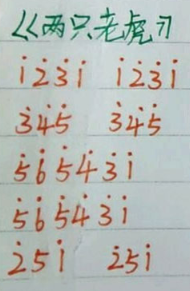 《两只老虎》
1̇2̇3̇1̇ 1̇2̇3̇1̇
3̇4̇5̇ 3̇4̇5̇
5̇6̇5̇4̇3̇1̇
5̇6̇5̇4̇3̇1̇
2̇51̇ 2̇51̇